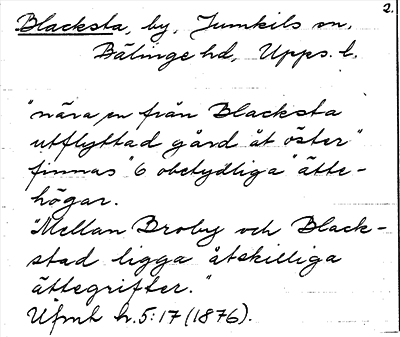 2.
Blacksta, by, Jumkils sn,
Bälinge hd, Upps. l.
"nära en från Blacksta
utflyttad gård åt öster"
finnas "6 obetydliga" ätte-
högar.
"Mellan Broby och Black-
stad ligga åtskilliga
ättegrifter."
Ufmt h.5:17 (1876).